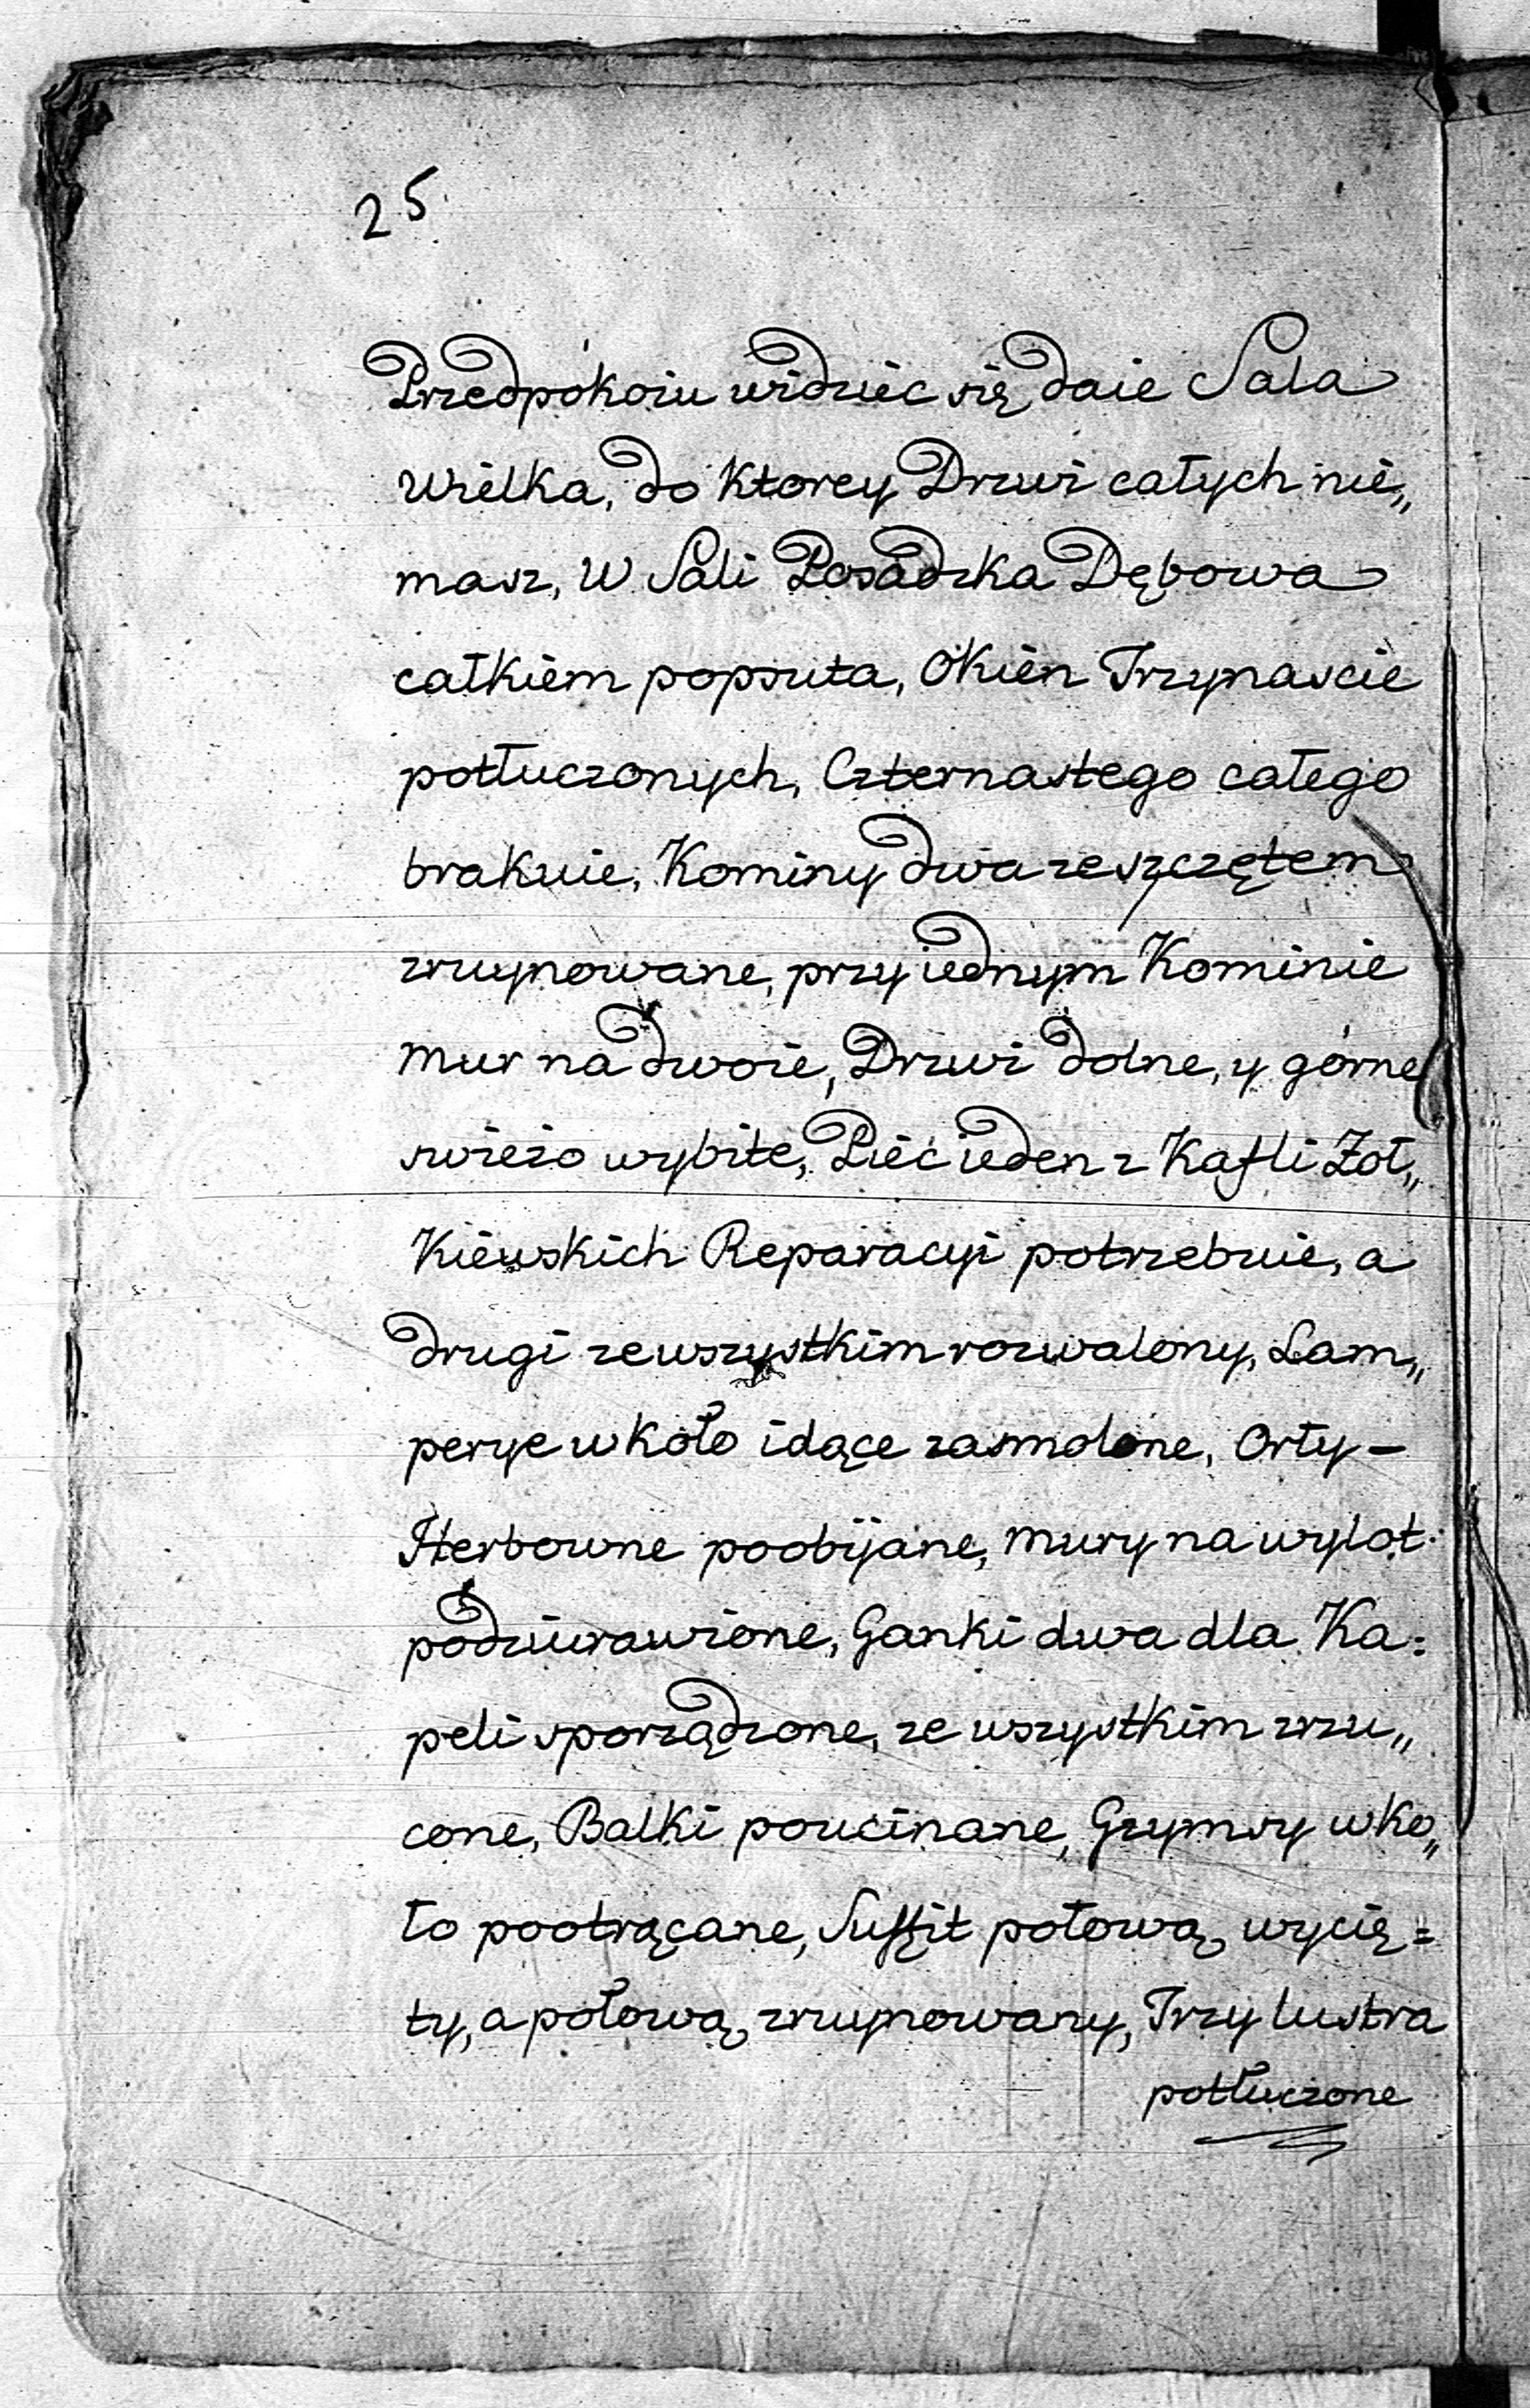 25.
Przedpokoiu widzieć się daie Sala
Wielka, do Ktorey Drzwi całych nie„
masz, W Sali Posadzka Dębowa
całkiem popsuta, Okien Trzynascie
potłuczonych, Czternastego całego
brakuie, Kominy dwa zeszczętem
zruynowane, przy iednym Kominie
mur na dwoie, Drzwi dolne, y górne
swieżo wybite, Piec ieden z Kafli Żoł„
Kiewskich Reparacyi potrzebuie, a
drugi ze wszystkim rozwalony, Lam„
perye w Koło idące zasmolone, Orły –
Herbowne poobijane, mury na wylot
podziurawione, Ganki dwa dla Ka:
peli sporządzone, ze wszystkim zrzu„
cone, Balki poucinane, Gzymsy wko„
ło pootrącane, Suffit połową wycię=
ty, a połową zruynowany, Trzy lustra
potłuczone